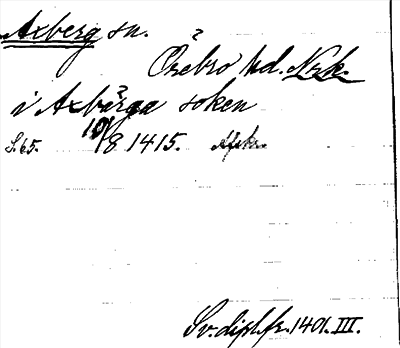 Axberg sn.
Örebro hd. Nrk.
i Axbärga soken
S. 65. 10/8 1415. Afskr.
Sv. dipl. fr. 1401. III.